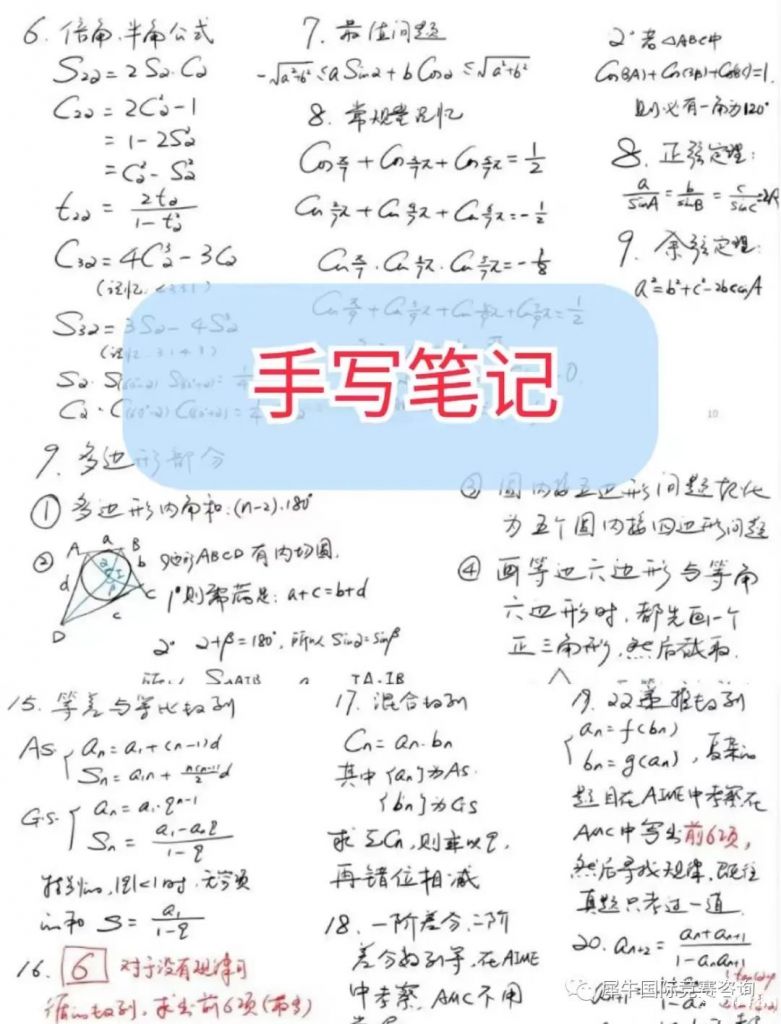 6. 倍角.半角公式
S₂₂ = 2S₂·C₂
C₂₂ = 2C₂² - 1
= 1 - 2S₂²
= C₂² - S₂²
t₂₂ = 2t₂ / (1 - t₂²)
C₃₂ = 4C₂³ - 3C₂
S₃₂ = 3S₂ - 4S₂³
7. 最值问题
-√(a²+b²) ≤ a Sin2 + b Cos2 ≤ √(a²+b²)
8. 常规量记忆
Cos π/7 + Cos 3/7π + Cos 5/7π = 1/2
Cos 2/7π + Cos 4/7π + Cos 6/7π = -1/2
= -1/8
= 1/2
2° 若△ABC中
Cos(3A) + Cos(3B) + Cos(3C) = 1.
则必有一角为120°
8. 正弦定理:
a/sinA = b/sinB = c/sinC = 2R
9. 余弦定理:
a² = b² + c² - 2bc cosA
手写笔记
10
9. 多边形部分
① 多边形内角和:(n-2)·180°
② A a B b C c D d
ABCD有内切圆.
1° 则需满足: a+c=b+d
2° 2+β=180°, 所以 Sin2=Sinβ
③ 圆内接五边形问题转化
为五个圆内接四边形问题
④ 画等边六边形与等角
六边形时,都先画一个
正三角形,然后截取.
15. 等差与等比数列
AS. { aₙ = a₁ + (n-1)d
Sₙ = a₁n + n(n-1)/2 d
G.S. { aₙ = a₁·qⁿ⁻¹
Sₙ = (a₁ - aₙq) / (1 - q)
特别的, |q|<1时, 无穷项
和 S = a₁ / (1 - q)
16. 6 对于没有规律可
循的数列, 求出前6项
17. 混合数列
Cₙ = aₙ·bₙ
其中{aₙ}为AS.
{bₙ}为GS
求ΣCₙ, 则乘以q,
再错位相减
18. 一阶差分、二阶
差分数列等, 在AIME
中考察, AMC不用
19. 22递推数列
{ aₙ = f(bₙ)
bₙ = g(aₙ) , 复杂的
题目在AIME中考察在
AMC中写出前6项,
然后寻找规律, 既往
真题只考过一道.
20. aₙ₊₂ = (aₙ + aₙ₊₁) / (1 - aₙaₙ₊₁)
犀牛国际竞赛咨询